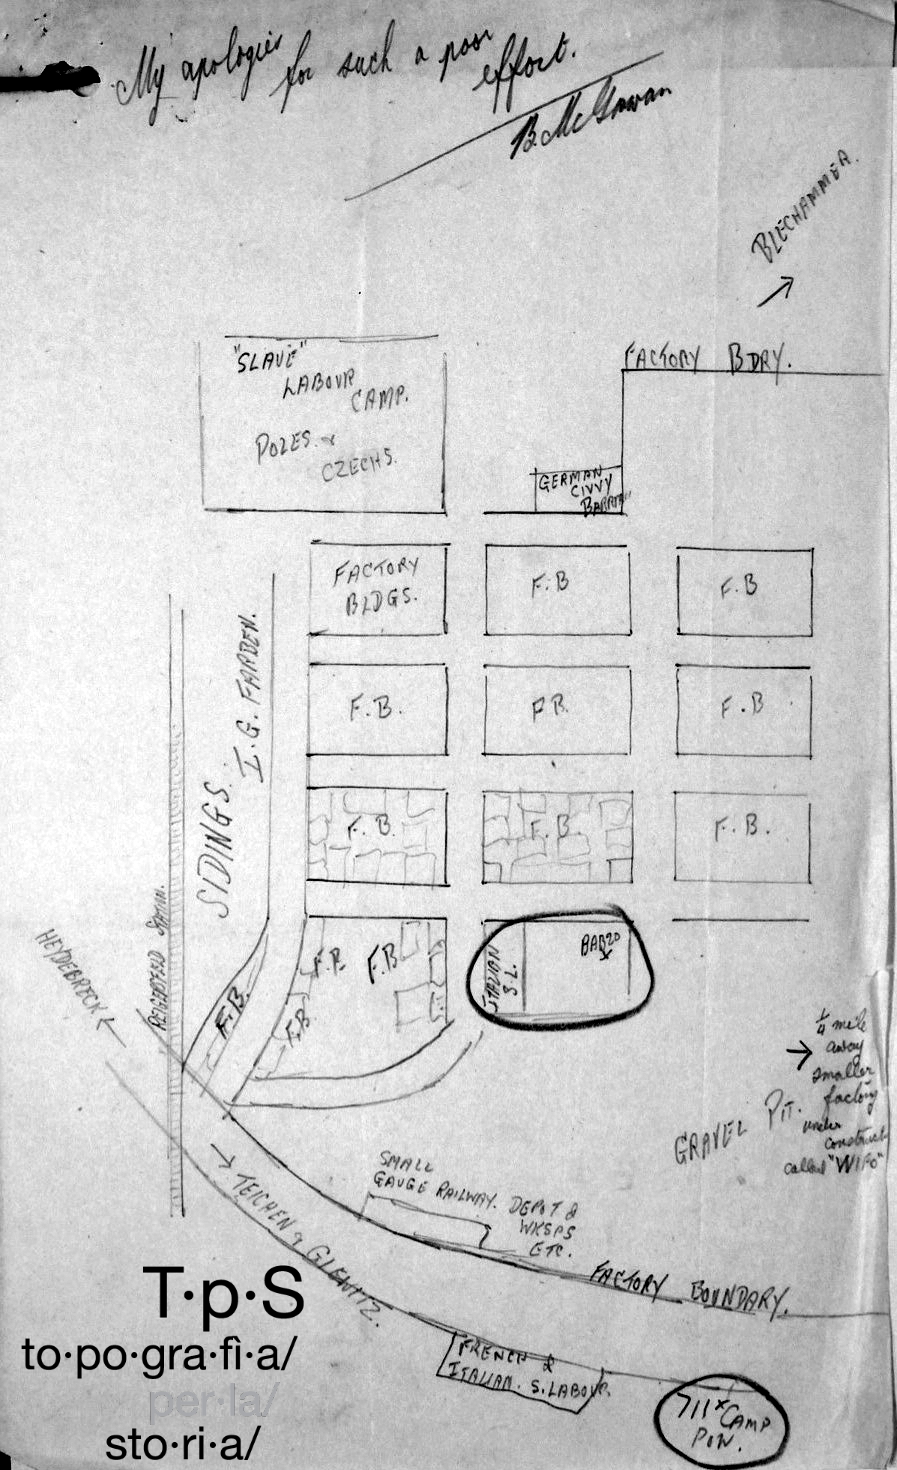 My apologies for such a poor
effort.
B. McGowan
BLECHAMMER.
FACTORY BDRY.
"SLAVE"
LABOUR
CAMP.
POLES &
CZECHS.
GERMAN
CIVVY
FACTORY
BLDGS.
F.B
F.B
I.G. FARBEN.
SIDINGS.
F.B.
F.B.
F.B
F.B.
F.B.
F.B.
HEYDEBRECK
STATION.
F.B.
F.B.
F.B
F.B
ITALIAN
S.L.
BAB20
1/4 mile
away
smaller
factory
under
construct
called "WIFO"
GRAVEL PIT.
SMALL
GAUGE RAILWAY. DEPOT &
WKSPS
ETC.
TEICHEN & GLEWITZ.
FACTORY BOUNDARY.
FRENCH &
ITALIAN. S. LABOUR.
711x CAMP
POW.
T·p·S
to·po·gra·fi·a/
per·la/
sto·ri·a/